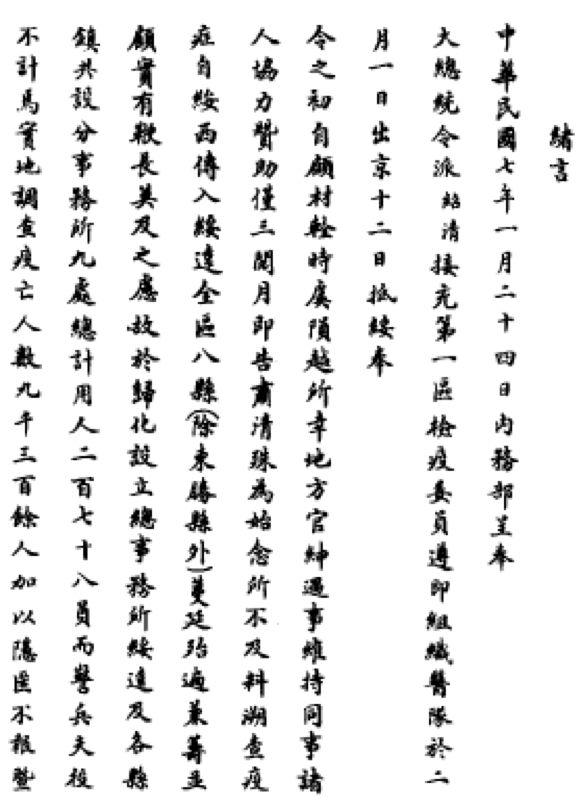 緒言
中華民國七年一月二十四日內務部呈奉
大總統令派紹清接充第一區檢疫委員遵即組織醫隊於二
月一日出京十二日抵綏奉
令之初自顧材輇時虞隕越所幸地方官紳遇事維持同事諸
人協力贊助僅三閱月即告肅清殊為始念所不及料溯查疫
症自綏西傳入綏遠全區八縣(除東勝縣外)蔓延殆遍兼籌並
顧實有鞭長莫及之慮故於歸化設立總事務所綏遠及各縣
鎮共設分事務所九處總計用人二百七十八員而警兵夫役
不計焉實地調查疫亡人數九千三百餘人加以隱匿不報暨